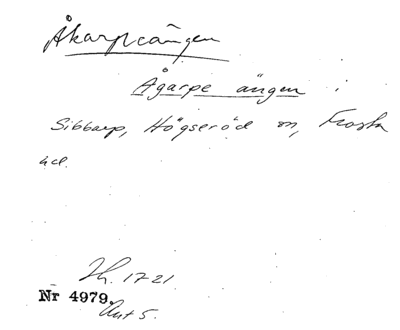 Åkarpsängen
Ågarpe ängen i
Sibbarp, Högseröd sn, Frosta
hd.
Lh. 1721.
Nr 4979.
Akt 5.